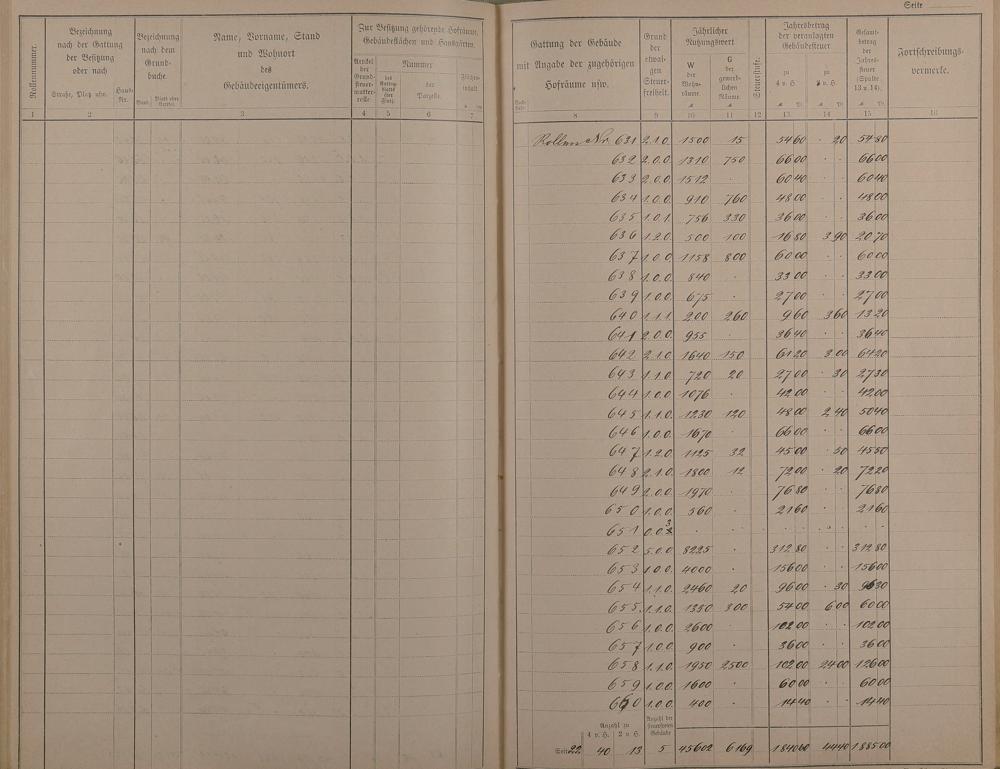 Seite
Rollennummer.
Bezeichnung
nach der Gattung
der Besitzung
oder nach
Straße, Platz usw.
Haus-
Nr.
Bezeichnung
nach dem
Grund-
buche.
Band.
Name, Vorname, Stand
und Wohnort
des
Gebäudeeigentümers.
Zur Besitzung gehörende Hofräume,
Gebäudeflächen und Hausgärten.
Artikel
der
Grund-
steuer-
mutter-
rolle
Nummer
der
Parzelle.
Flächen-
inhalt
Gattung der Gebäude
mit Angabe der zugehörigen
Hofräume usw.
Grund
der
etwai-
gen
Steuer-
freiheit.
Jährlicher
Nutzungswert
W
der
Wohn-
räume
G
der
gewerb-
lichen
Räume
Steuerstufe.
Jahresbetrag
der veranlagten
Gebäudesteuer
zu
4 v. H.
zu
2 v. H.
Gesamt-
betrag
der
Jahres-
steuer
(Spalte
13 u. 14).
Fortschreibungs-
vermerke.
1 2 3 4 5 6 7 8 9 10 11 12 13 14 15 16
Rollen Nr. 631 2.1.0. 1500 15 54 60 · 20 54 80
632 2.0.0. 1310 750 66 00 · · 66 00
633 2.0.0. 1512 · 60 40 · · 60 40
634 1.0.0. 910 760 48 00 · · 48 00
635 1.0.1. 756 330 36 00 · · 36 00
636 1.2.0. 500 100 16 80 3 90 20 70
637 1.0.0. 1158 800 60 00 · · 60 00
638 1.0.0. 840 · 33 00 · · 33 00
639 1.0.0. 675 · 27 00 · · 27 00
640 1.1.1. 200 260 9 60 3 60 13 20
641 2.0.0. 955 · 36 40 · · 36 40
642 2.1.0. 1640 150 61 20 3 00 64 20
643 1.1.0. 720 20 27 00 · 30 27 30
644 1.0.0. 1076 · 42 00 · · 42 00
645 1.1.0. 1230 120 48 00 2 40 50 40
646 1.0.0. 1670 · 66 00 · · 66 00
647 1.2.0. 1125 32 45 00 · 50 45 50
648 2.1.0. 1800 12 72 00 · 20 72 20
649 2.0.0. 1970 · 76 80 · · 76 80
650 1.0.0. 560 · 21 60 · · 21 60
651 0.0.3 · · · · · · · ·
652 5.0.0. 8225 · 312 80 · · 312 80
653 1.0.0. 4000 · 156 00 · · 156 00
654 1.1.0. 2460 20 96 00 · 30 96 30
655 1.1.0. 1350 300 54 00 6 00 60 00
656 1.0.0. 2600 · 102 00 · · 102 00
657 1.0.0. 900 · 36 00 · · 36 00
658 1.1.0. 1950 2500 102 00 24 00 126 00
659 1.0.0. 1600 · 60 00 · · 60 00
660 1.0.0. 400 · 14 40 · · 14 40
Anzahl zu
4 v. H. 2 v. H.
Anzahl der
steuerfreien
Gebäude
Seite 22 40 13 5 45602 6169 1840 60 44 40 1885 00